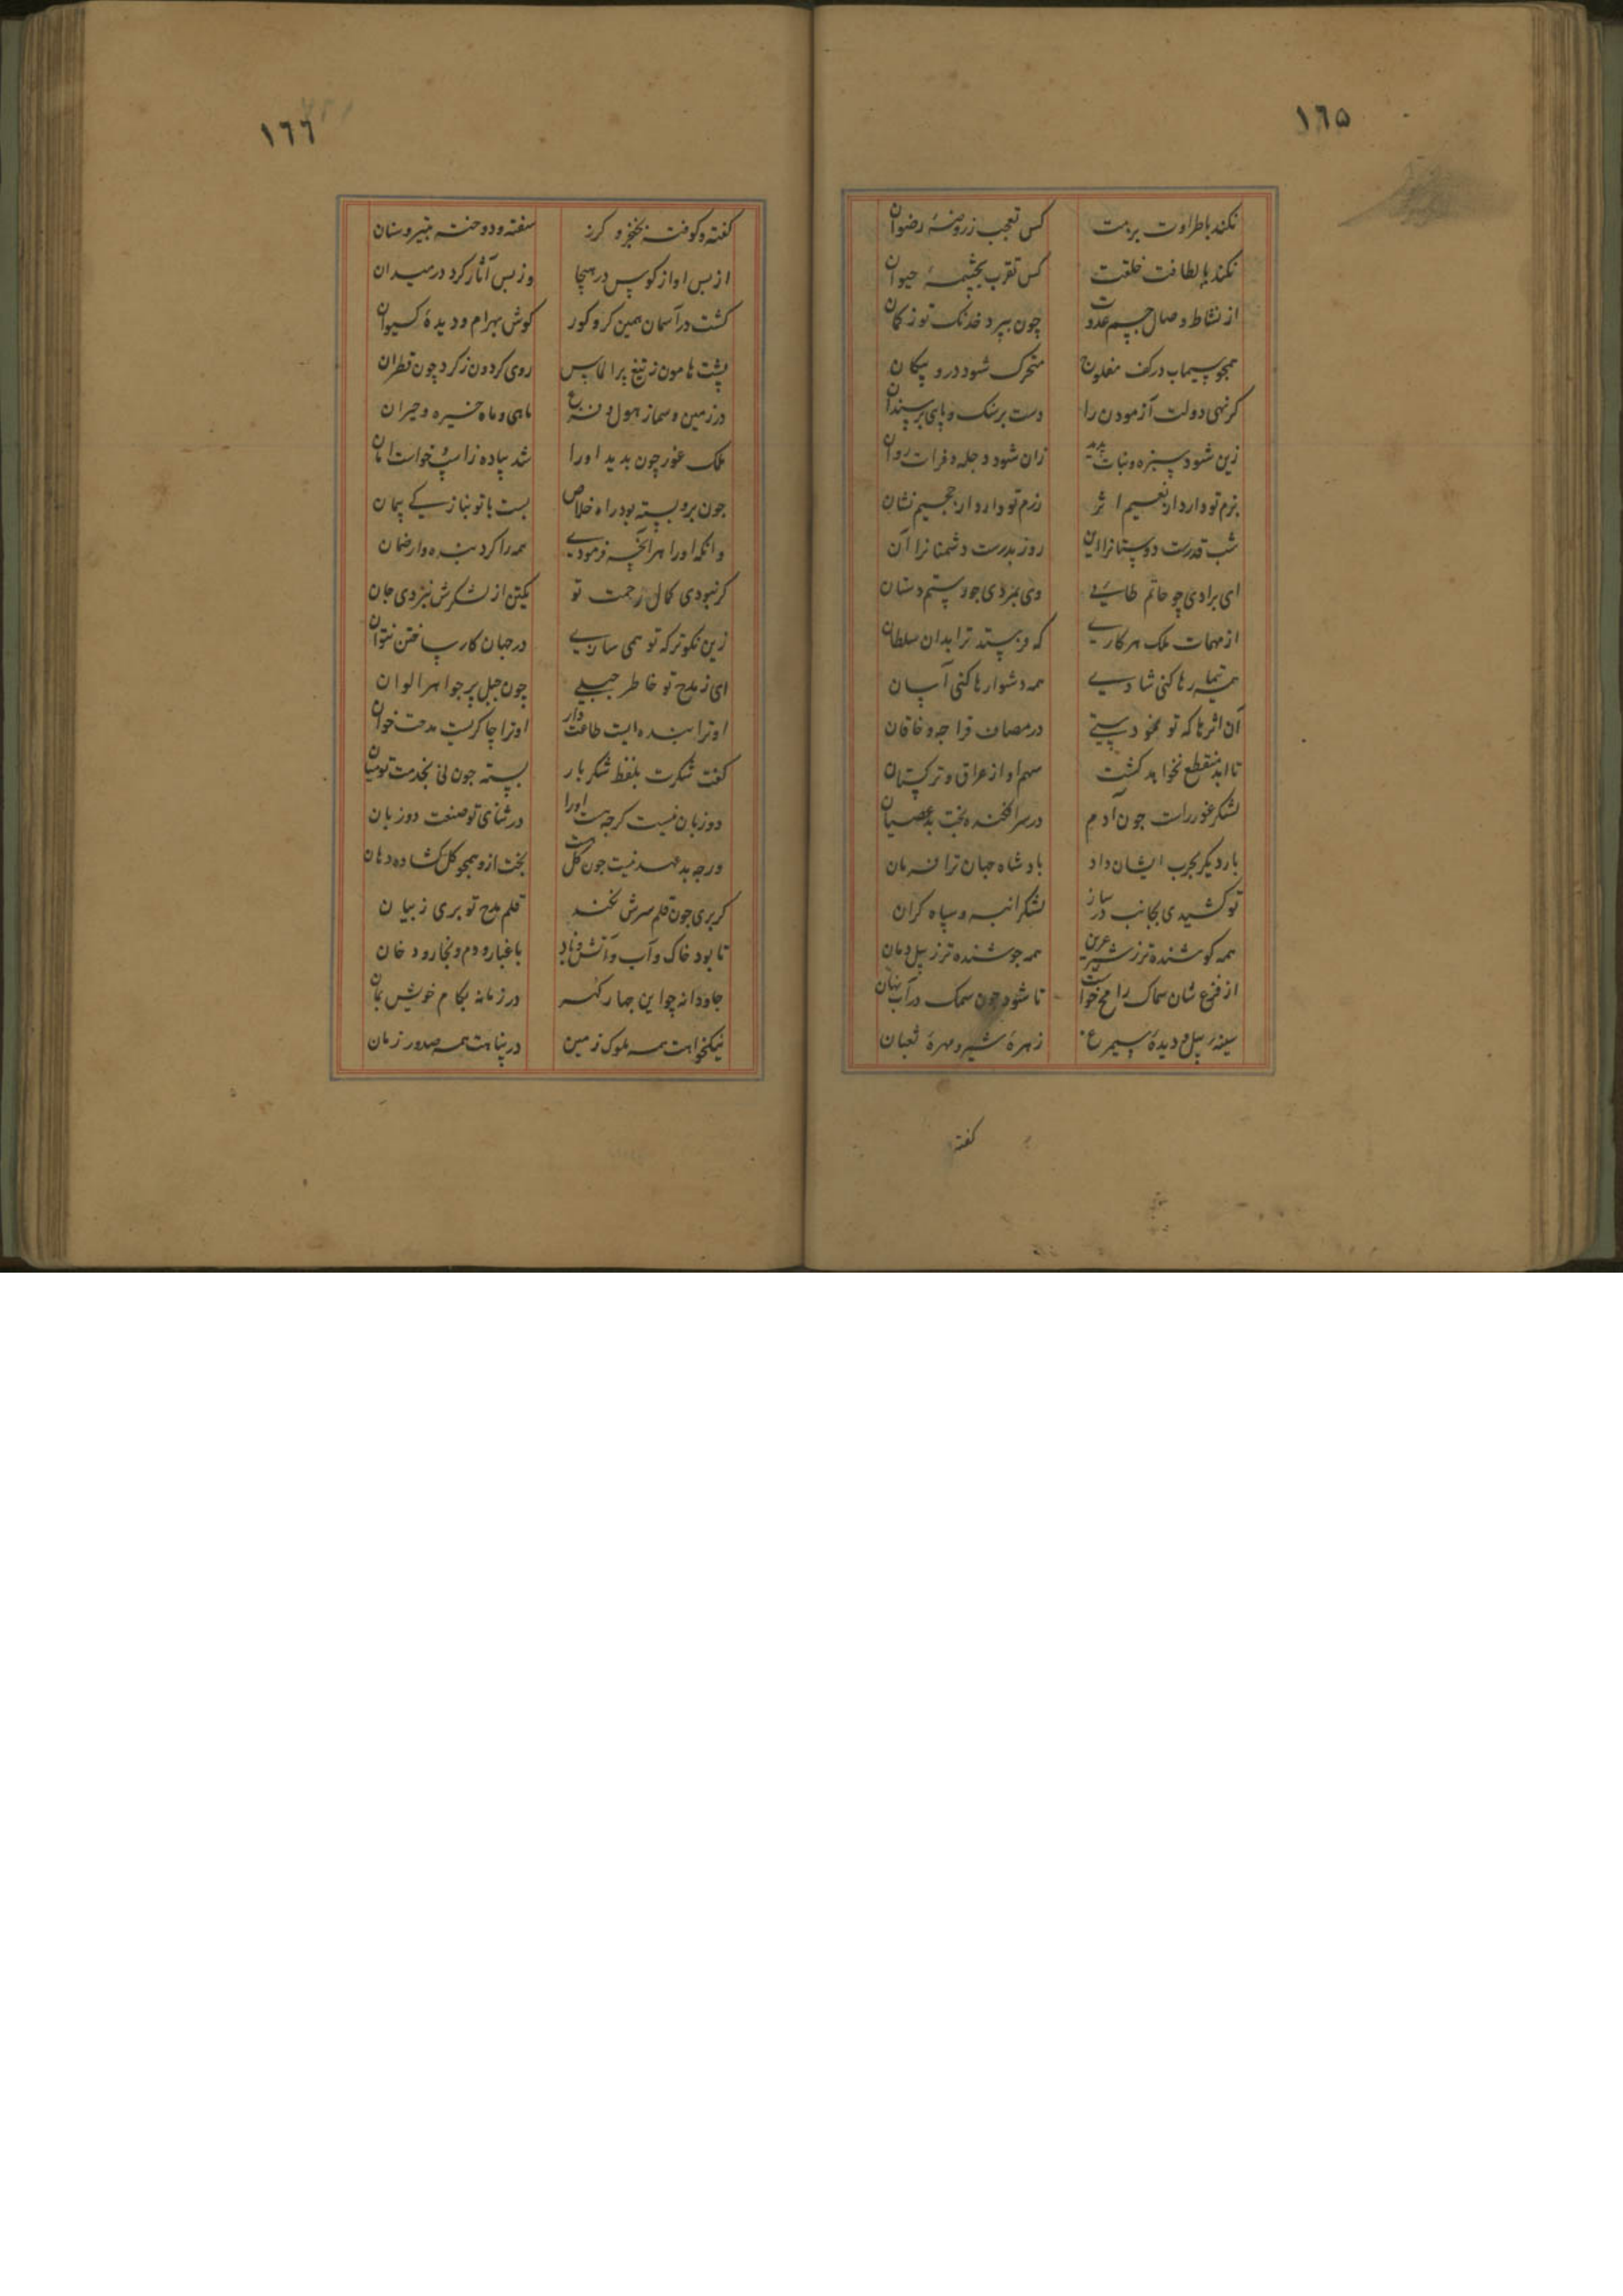 ١٦٥
نکند باطراوت بزمت کس تعجب ز روضهٔ رضوان
نکند بالطافت خلقت کس تقرب بچشمهٔ حیوان
از نشاط وصال جسم عدوت چون بپرد خدنک تو ز کمان
همچو سیماب در کف مفلوج متحرک شود درو پیکان
کر نهی دولت آزمودن را دست بر سنک و پای بر سندان
زین شود سبزه و نبات پدید زان شود دجله و فرات روان
بزم تو دارد از نعیم اثر رزم تو دارد از جحیم نشان
شب قدرست دوستانرا این روز بدرست دشمنانرا آن
ای برادی چو حاتم طایی وی بمردی جو رستم دستان
از مهمات ملک هر کاری که فرستد ترا بدان سلطان
همه تیمارها کنی شادی همه دشوارها کنی آسان
آن اثرها که تو نمودستی در مصاف قراجه و خاقان
تا ابد منقطع نخواهد کشت سهم او از عراق و ترکستان
لشکر غور راست جون آدم در سر افکنده بخت بد عصیان
بار دیکر بحرب ایشان داد بادشاه جهان ترا فرمان
تو کشیدی بجانب در ساز لشکر انبه و سپاه کران
همه کوشنده تر ز شیر عرین همه جوشنده تر ز پیل دمان
از فزع شان سماک را می خواست تا شود چون سمک در آب نهان
سینهٔ پیل و دیدهٔ سیمرغ زهرهٔ شیر و مهرهٔ ثعبان
کفته
١٦٦
کفته و کوفته بخنجر و کرز سفته و دوخته بتیر و سنان
از بس اواز کوس در هیجا وز بس آثار کرد در میدان
کشت در آسمان همین کر و کور کوش بهرام و دیدهٔ کیوان
پشت هامون ز تیغ پر الماس روی کردون ز کرد چون قطران
در زمین و سما ز هول و فزع ماهی و ماه خیره و حیران
ملک غور چون بدید اورا شد پیاده ز اسپ و خواست امان
جون برو بسته بود راه خلاص بست با تو بتازکی پیمان
وانکه اورا بهر آنچه فرمودی همه را کرد بنده وار ضمان
کر نبودی کمال رحمت تو یکتن از لشکرش نبردی جان
زین نکوتر که تو همی سازی در جهان کار ساختن نتوان
ای ز مدح تو خاطر جبلی چون جبل پر جواهر الوان
او ترا بنده ایست طاعت دار او ترا چاکریست مدحت خوان
کفت شکرت بلفظ شکر بار بسته جون نی بخدمت تو میان
دو زبان نیست کرچه هست اورا در ثنای تو صنعت دو زبان
ورجه بد عهد نیست جون کل هست بخت ازو همچو کل کشاده دهان
کر بری جون قلم سرش نکند قلم مدح تو بری ز بیان
تا بود خاک و آب و آتش و باد با غبار و دم و بخار و دخان
جاودانه چو این جهار کهر در زمانه بکام خویش بمان
نیکخواهت همه ملوک زمین در پناهت همه صدور زمان